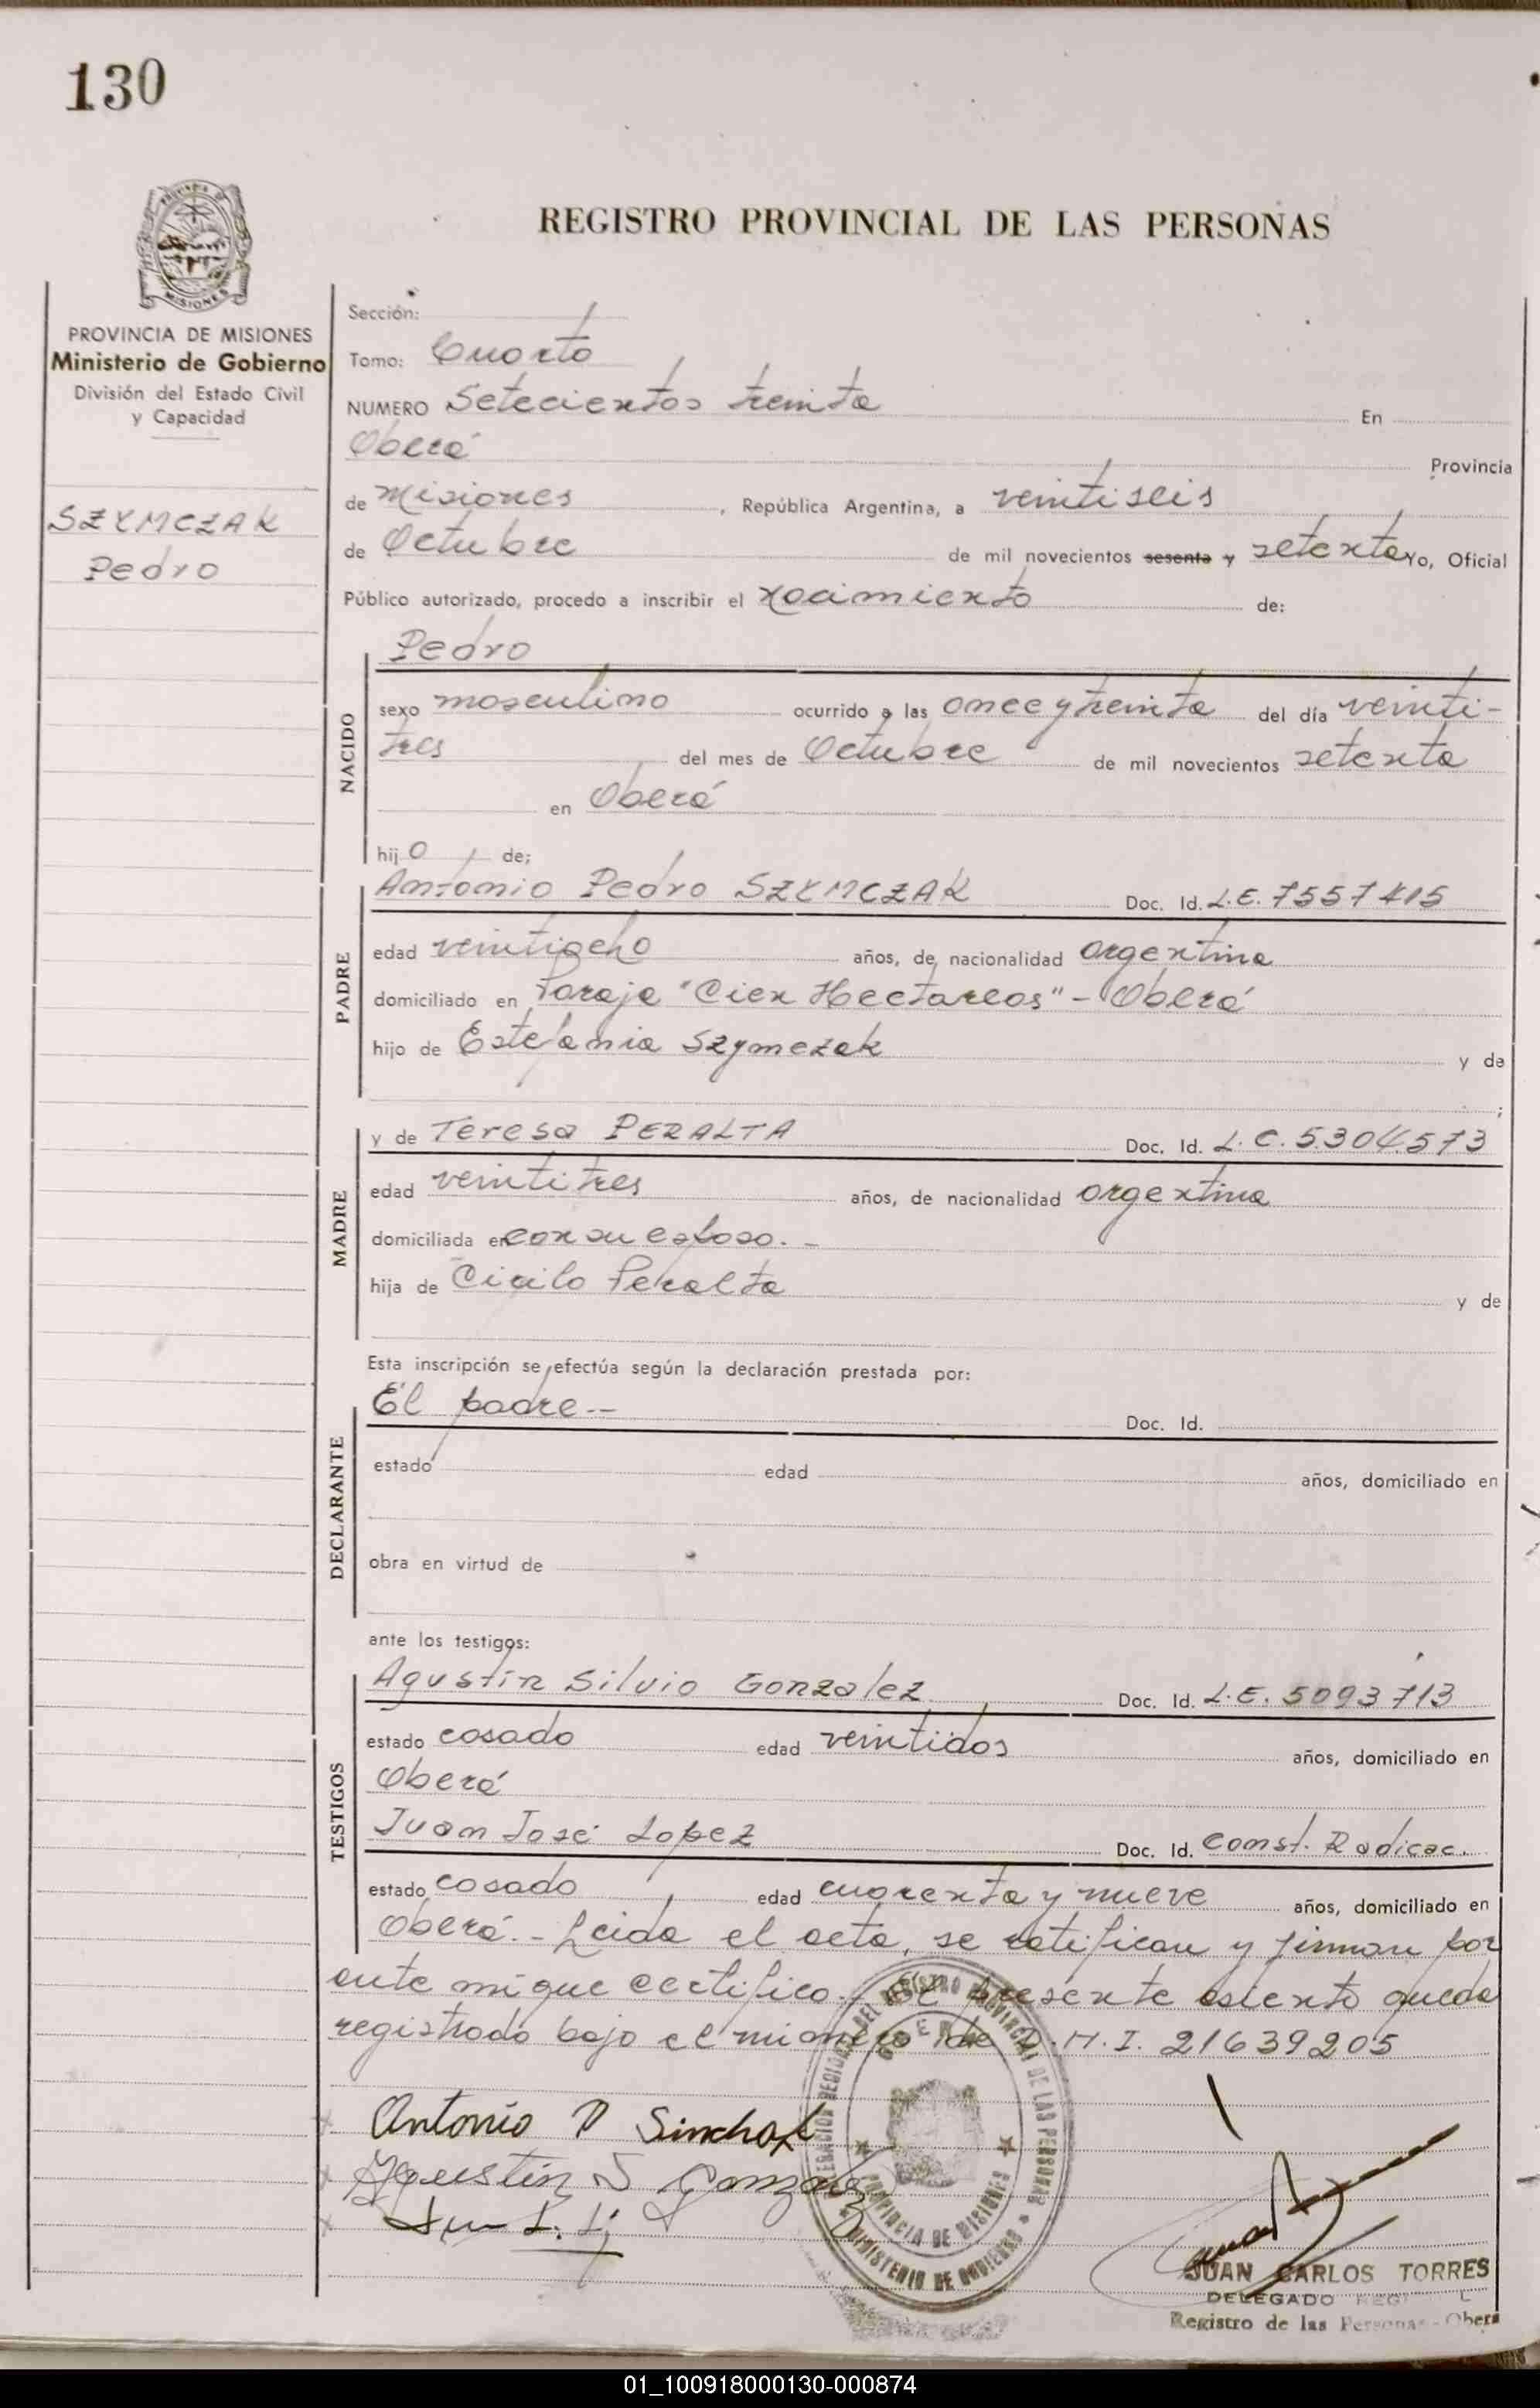 130
REGISTRO PROVINCIAL DE LAS PERSONAS
PROVINCIA DE MISIONES
Ministerio de Gobierno
División del Estado Civil
y Capacidad
SZYMCZAK
Pedro
Sección:
Tomo: Cuarto
NUMERO Setecientos treinta En
Oberá Provincia
de Misiones, República Argentina, a veintiseis
de Octubre de mil novecientos sesenta y setenta Yo, Oficial
Público autorizado, procedo a inscribir el nacimiento de:
NACIDO
Pedro
sexo masculino ocurrido a las once y treinta del día veinti-
tres del mes de Octubre de mil novecientos setenta
en Oberá
hijo de;
PADRE
Antonio Pedro SZYMCZAK Doc. Id. L.E. 7557415
edad veintiocho años, de nacionalidad argentina
domiciliado en Paraje "Cien Hectareas" - Oberá
hijo de Estefania Szymczak y de
;
MADRE
y de Teresa PERALTA Doc. Id. L.C. 5.304.573
edad veintitres años, de nacionalidad argentina
domiciliada en con su esposo. -
hija de Cirilo Peralta y de
Esta inscripción se efectúa según la declaración prestada por:
DECLARANTE
El padre.-- Doc. Id.
estado edad años, domiciliado en
obra en virtud de
ante los testigos:
TESTIGOS
Agustín Silvio Gonzalez Doc. Id. L.E. 5093713
estado casado edad veintidos años, domiciliado en
Oberá
Juan José Lopez Doc. Id. Const. Radicac.
estado casado edad cuarenta y nueve años, domiciliado en
Oberá.- Leida el acta, se ratifican y firman por
ante mi que certifico.- El presente asiento queda
registrado bajo el número de D.M.I. 21639205
Antonio P
Agustin S Gonzalez
DELEGACION REGIONAL DEL REGISTRO PROVINCIAL DE LAS PERSONAS
OBERA
PROVINCIA DE MISIONES
MINISTERIO DE GOBIERNO
JUAN CARLOS TORRES
DELEGADO
Registro de las Personas - Oberá
01_100918000130-000874